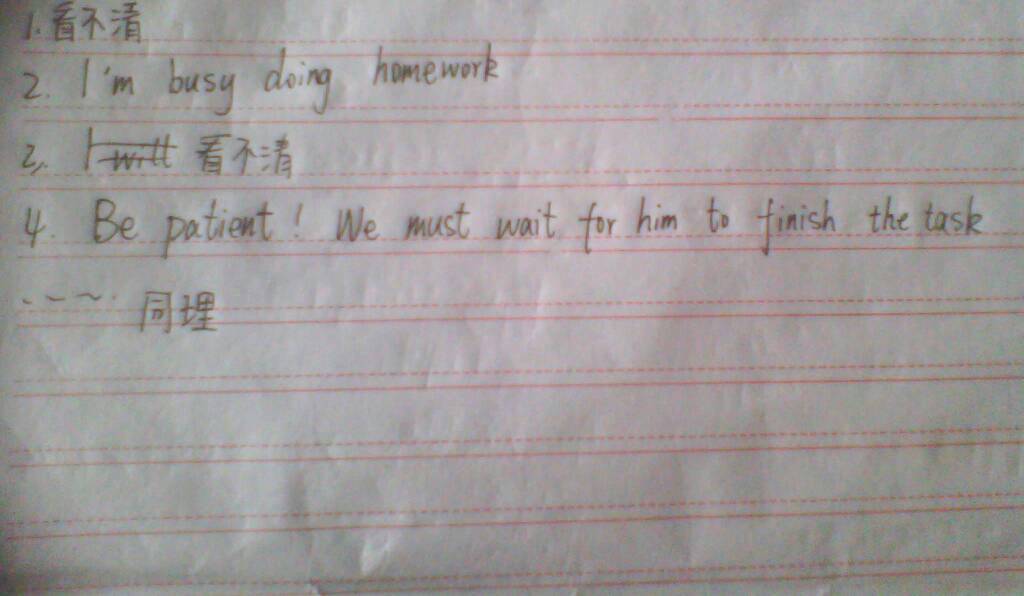 1. 看不清
2. I'm busy doing homework
3. I will 看不清
4. Be patient! We must wait for him to finish the task
同理